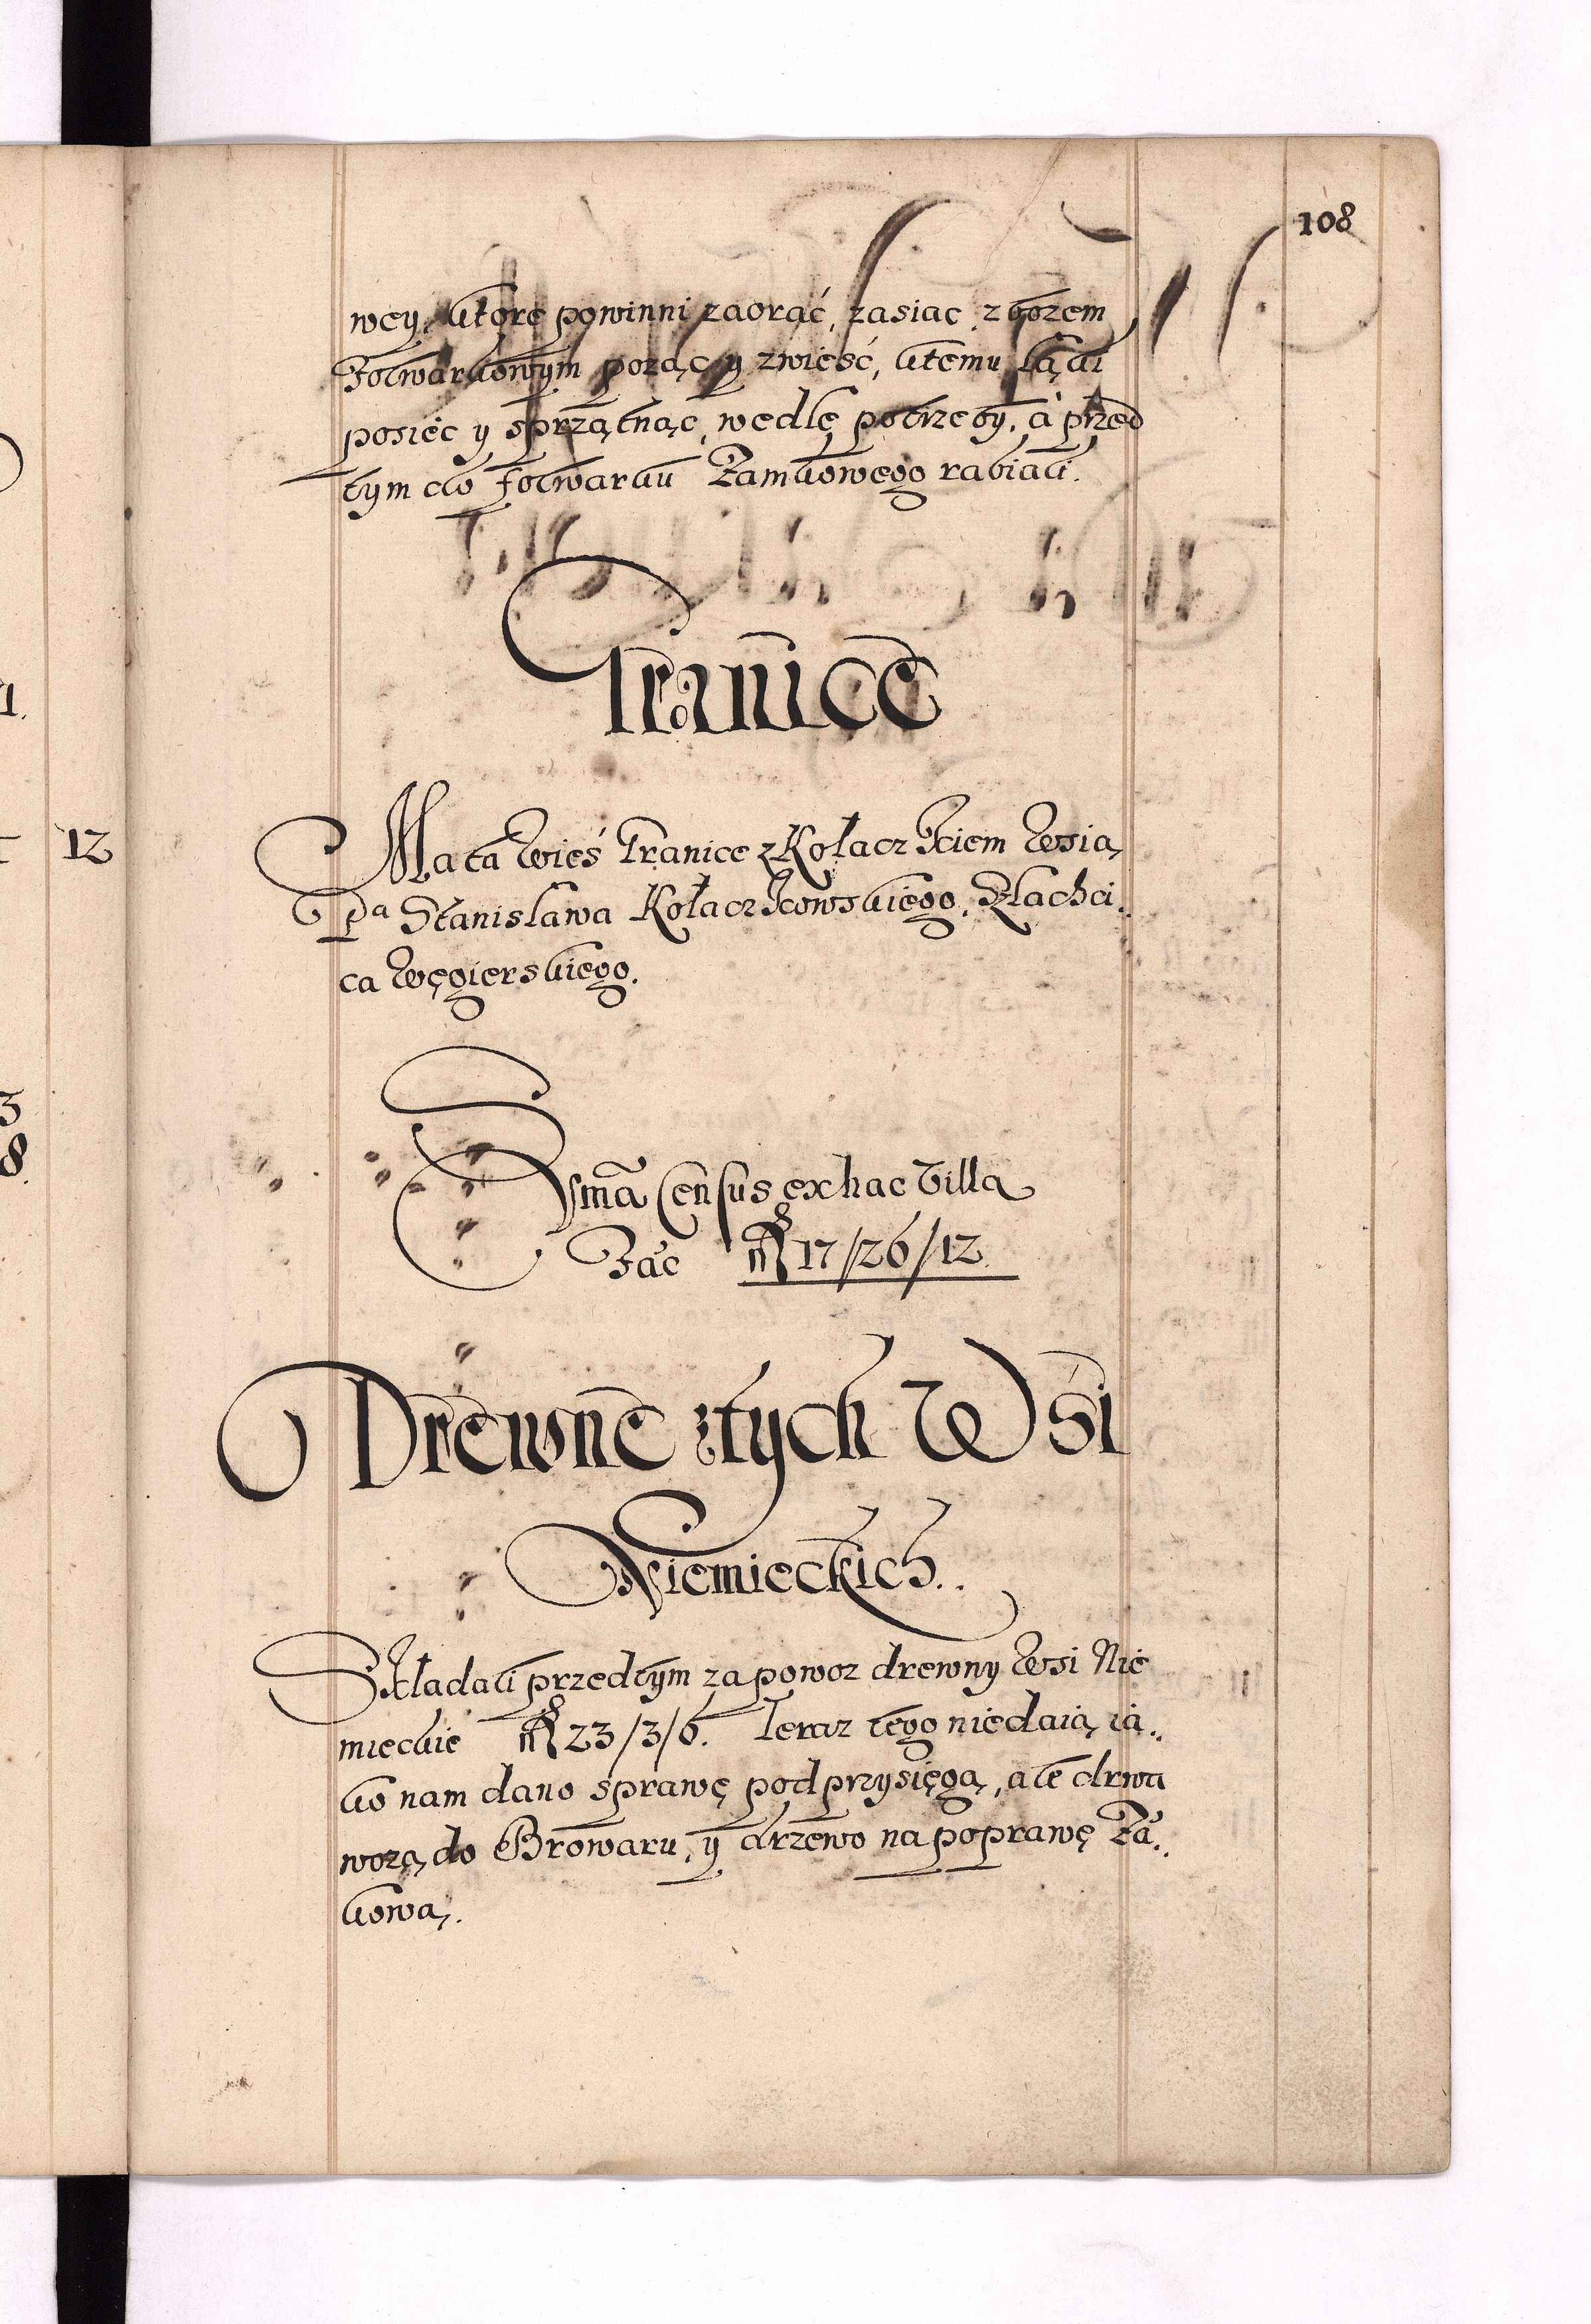 108
wey, ktore powinni zaorać, zasiac, z bozem
Folwarkowym pożąc y zwieść, ktemu łąki
posiec y sprzątnąc, wedle potrzeby, á przed
tym do folwarku Zamkowego rabiali.
Granice
Ma ta Wieś Granice z Kołaczkiem Wsią,
Pᵃ Stanisława Kołaczkowskiego, Szlachci..
ca Węgierskiego.
Sũmã Census ex hac Villa
Fác 17/26/12.
Drewne z tych Wśi
Niemieckich..
Składali przedtym za powoz drewny Wsi Nie
mieckie 23/3/6. Teraz tego niedaią, ia..
ko nam dano sprawę pod przysięgą, ale drwa
wożą do Browaru, y drzewo na poprawę Zá..
kową.
12
1.
3
8.